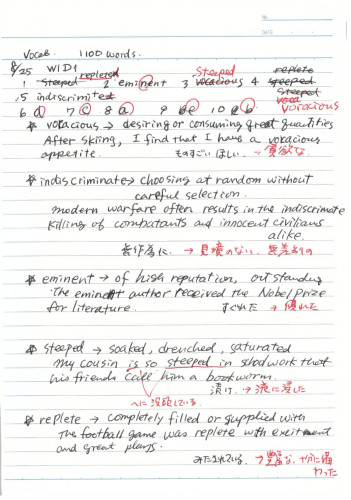 Vocab. 1100 words.
8/25 W1D1
1 steeped replete 2 eminent 3 voracious steeped 4 steeped replete
5 indiscriminate voracious
6 d 7 c 8 a 9 e 10 b
voracious → desiring or consuming great quantities
After skiing, I find that I have a voracious
appetite. ものすごい ほしい. → 貪欲な
indiscriminate → choosing at random without
careful selection.
modern warfare often results in the indiscrimate
killing of combatants and innocent civilians
alike.
無作為に. → 見境のない, 無差別の
eminent → of high reputation, outstanding
The eminent author received the Nobel prize
for literature. すぐれた → 優れた
steeped → soaked, drenched, saturated
my cousin is so steeped in schoolwork that
his friends call him a bookworm.
漬け. → 液に浸した
〜に没頭している
replete → completely filled or supplied with
The football game was replete with excitment
and great plays.
みたされている. → 豊富な, 十分に備
わった